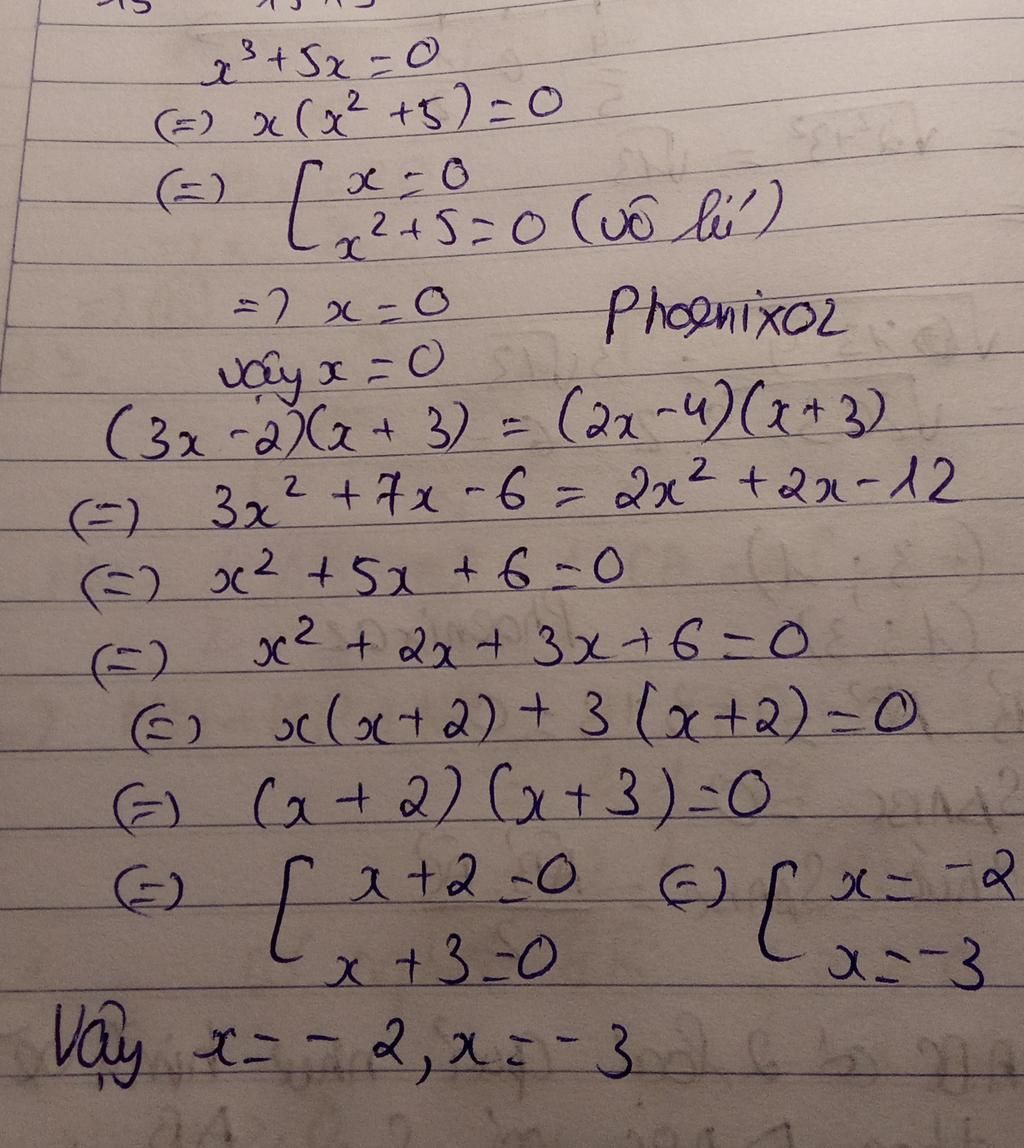 x³ + 5x = 0
(=) x(x² + 5) = 0
(=) [ x = 0
x² + 5 = 0 (vô lí)
=> x = 0 Phoenix02
vậy x = 0
(3x - 2)(x + 3) = (2x - 4)(x + 3)
(=) 3x² + 7x - 6 = 2x² + 2x - 12
(=) x² + 5x + 6 = 0
(=) x² + 2x + 3x + 6 = 0
(=) x(x + 2) + 3(x + 2) = 0
(=) (x + 2)(x + 3) = 0
(=) [ x + 2 = 0 (=) [ x = -2
x + 3 = 0 x = -3
Vậy x = -2, x = -3